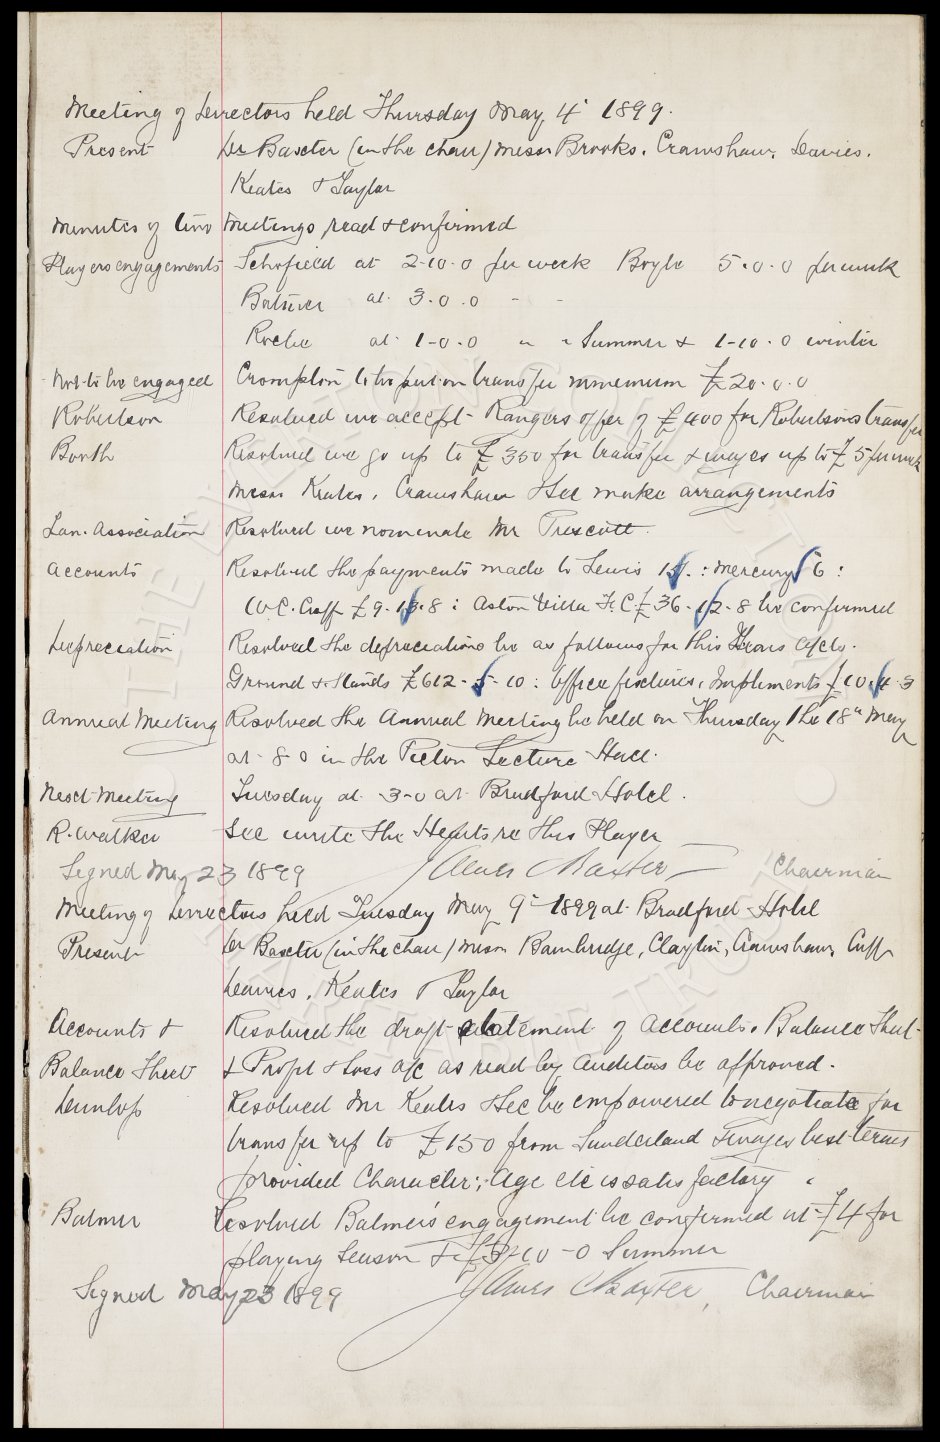 Meeting of Directors held Thursday May 4th 1899.
Present Dr Baxter (in the chair) Messrs Brooks. Crawshaw. Davies.
Keates & Taylor
Minutes of two Meetings read & confirmed
Players engagements Schofield at 2-10-0 per week Boyle 5.0.0 per week
Batmer at 3.0.0 - -
Roche at 1-0-0 " " Summer & 1-10.0 winter
Not to be engaged Crompton to be put on transfer minimum £20.0.0
Robertson Resolved we accept Rangers offer of £400 for Robertsons transfer
Booth Resolved we go up to £350 for transfer & wages up to £5 per week
Messrs Keates, Crawshaw & Sec make arrangements
Lan. Association Resolved we nominate Mr Trescott.
Accounts Resolved the payments made to Lewis : Mercury 6 :
W.C. Cuff £9.13.8 : Aston Villa F.C £36.12.8 be confirmed
Depreciation Resolved the depreciations be as follows for this Years a/cts.
Ground & Stands £612-5-10 : Office fixtures, Impliments £10.4.3
Annual Meeting Resolved the Annual Meeting be held on Thursday the 18th May
at 8-0 in the Picton Lecture Hall.
Next Meeting Tuesday at 3-0 at Bradford Hotel.
R. Walker Sec write the Hearts re this Player
Signed May 23 1899 James Baxter Chairman
Meeting of Directors held Tuesday May 9th 1899 at Bradford Hotel
Present Dr Baxter (in the chair) Messrs Bainbridge, Clayton, Crawshaw, Cuff
Davies, Keates & Taylor
Accounts & Resolved the draft statement of Accounts, Balance Sheet
Balance Sheet & Profit & Loss a/c as read by Auditors be approved.
Dunlop Resolved Mr Keates & Sec be empowered to negotiate for
transfer up to £150 from Sunderland & wages best terms
provided Character, Age etc is satisfactory.
Balmer Resolved Balmer's engagement be confirmed at £4 for
playing season & £3-10-0 Summer
Signed May 23 1899 James Baxter, Chairman